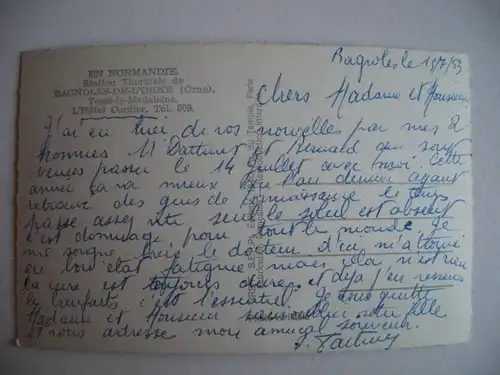 EN NORMANDIE.
Station Thermale de
BAGNOLES-DE-L'ORNE (Orne).
Tessé-la-Madeleine.
L'Hôtel Cordier, Tél. 509.
Bagnoles le 19/7/53
Chers Madame et Monsieur
J'ai eu de vos nouvelles par mes 2
hommes M et qui sont
venus passer le 14 juillet avec moi. Cette
année ça va mieux que l'an dernier ayant
retrouvé des gens de connaissance le temps
passe assez vite seul le soleil est absent
c'est dommage pour tout le monde. Je
me soigne le docteur d'en m'a
en bon état fatiguée mais cela n'est rien
la cure est toujours dure. et déjà j'en ressens
les bienfaits, c'est l'essentiel. Je vous quitte
Madame et Monsieur sans oublier votre fille
et vous adresse mon amical souvenir.